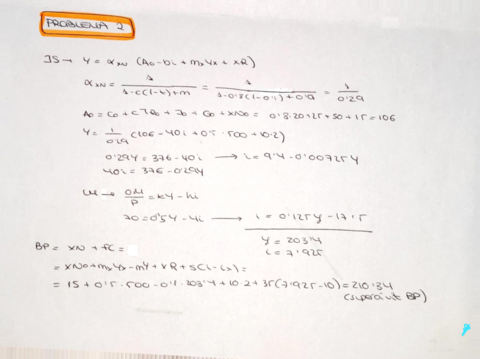 PROBLEMA 2
IS → Y = αXN (A0 - bi + mxYx + xR)
αXN = 1 / 1-c(1-t)+m = 1 / 1-0'8(1-0'1)+0'1 = 1 / 0'29
A0 = C0 + cTR0 + I0 + G0 + XN0 = 0'8·20+25+50+15 = 106
Y = 1/0'29 (106 - 40i + 0'5·500 + 10·2)
0'29Y = 376 - 40i → i = 9'4 - 0'00725Y
40i = 376 - 0'29Y
LM → OM/P = kY - hi
70 = 0'5Y - 4i → i = 0'125Y - 17'5
Y = 203'4
i = 7'925
BP = XN + FC =
= XN0 + mxYx - mY + xR + s(i-ix) =
= 15 + 0'5·500 - 0'1·203'4 + 10·2 + 35(7'925-10) = 210'34
(superávit BP)